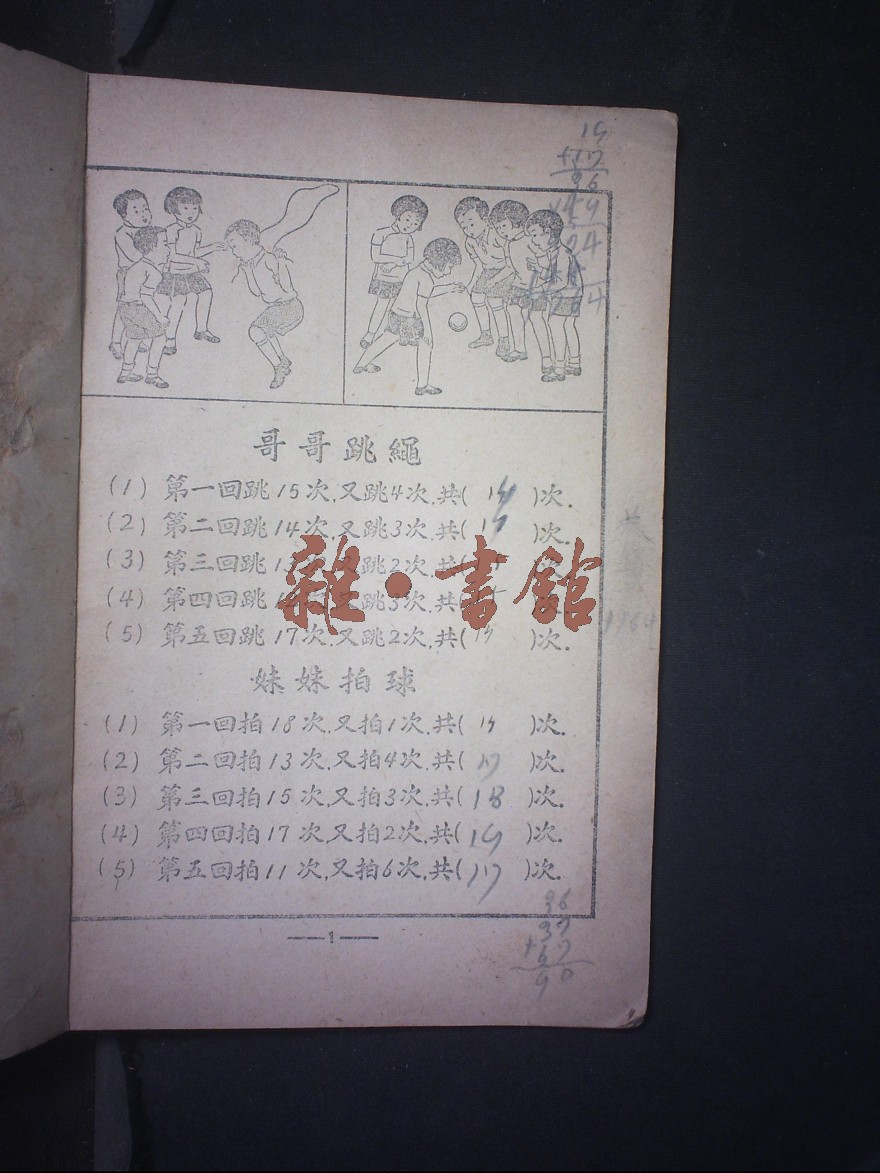 哥哥跳繩
(1) 第一回跳15次,又跳4次,共( 19 )次.
(2) 第二回跳14次,又跳3次,共( 17 )次.
(3) 第三回跳13次,又跳2次,共( )次.
(4) 第四回跳 又跳3次,共( )次.
(5) 第五回跳 17次,又跳2次,共( 19 )次.
妹妹拍球
(1) 第一回拍18次,又拍1次,共( 19 )次.
(2) 第二回拍13次,又拍4次,共( 17 )次.
(3) 第三回拍15次,又拍3次,共( 18 )次.
(4) 第四回拍17次,又拍2次,共( 19 )次.
(5) 第五回拍11次,又拍6次,共( 17 )次.
雜·書館
—1—